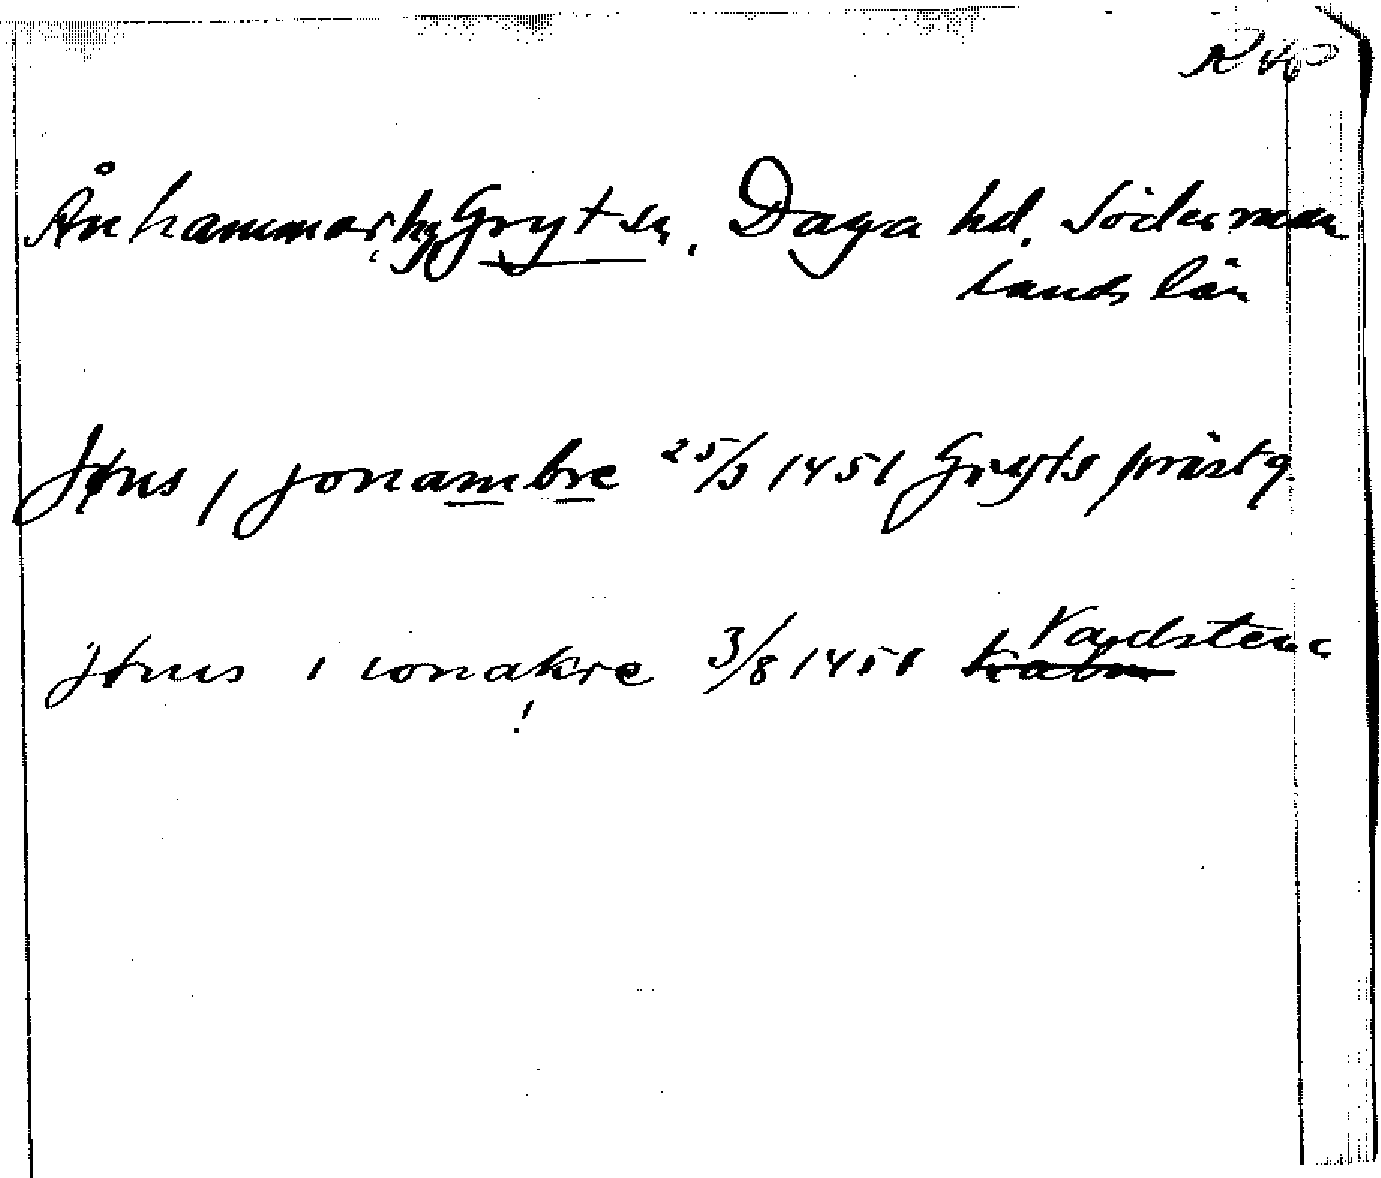 Ånhammar, hg Gryt sn, Daga hd. Söderman
lands län
Jöns i jonambre 25/3 1451 Gryts prästg
Jöns i ionakre 3/8 1451 Vadstena
!